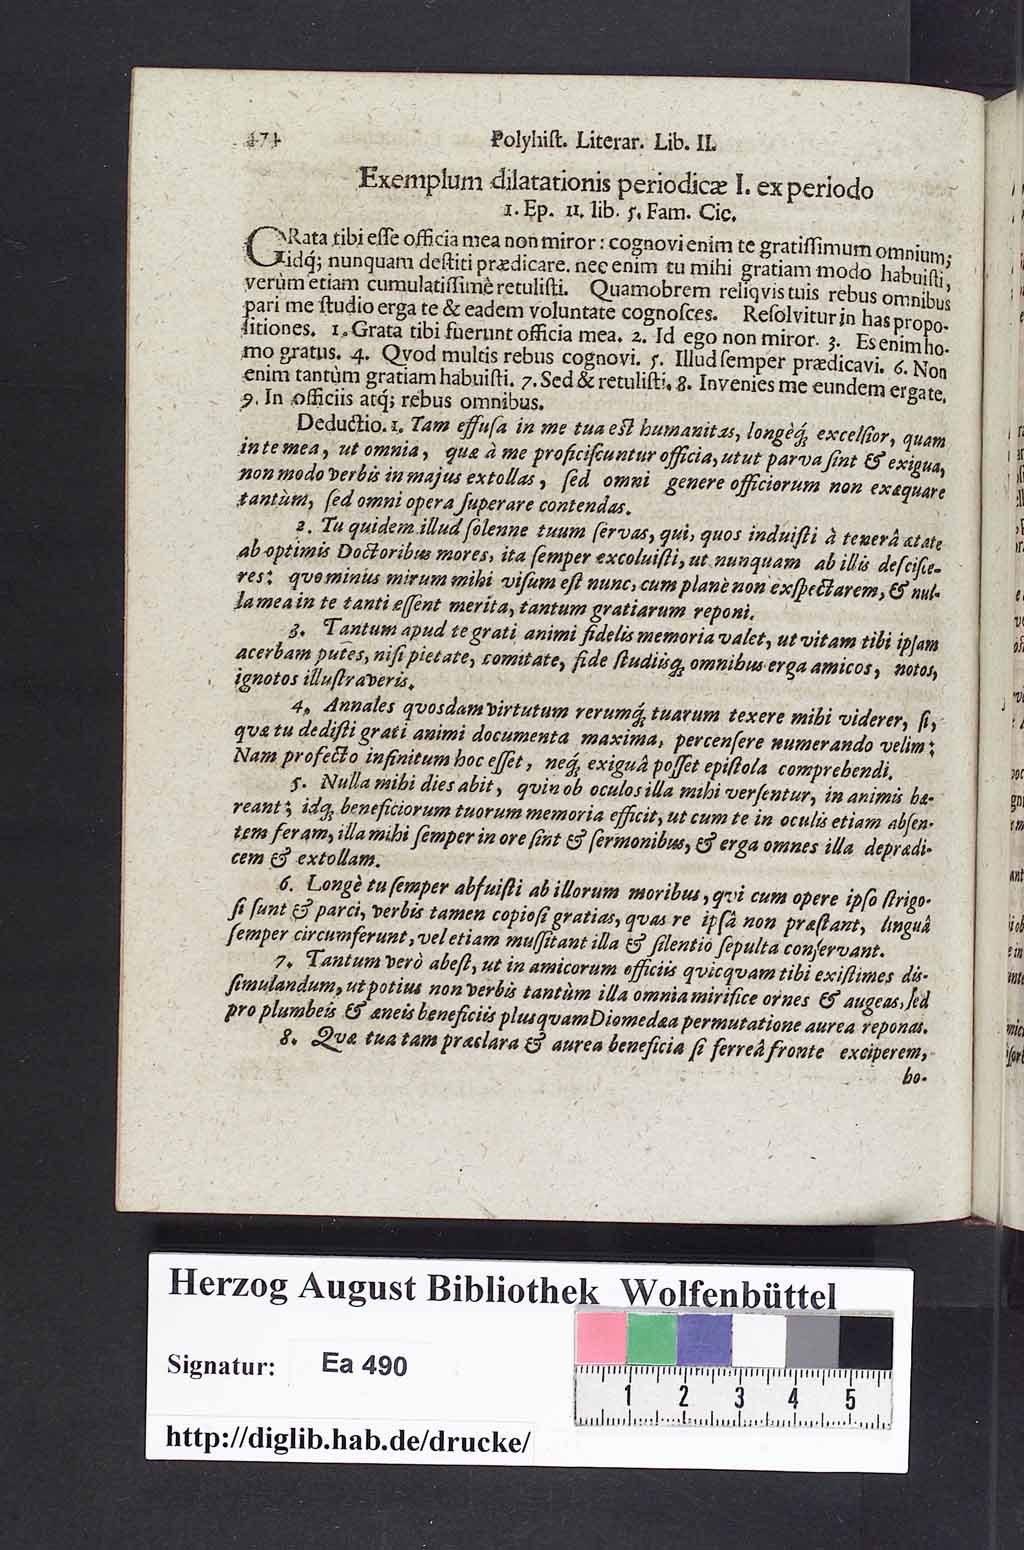 474 Polyhiſt. Literar. Lib. II.
Exemplum dilatationis periodicæ I. ex periodo
1. Ep. 11. lib. 5. Fam. Cic.
GRata tibi eſſe officia mea non miror: cognovi enim te gratiſſimum omnium;
idq́; nunquam deſtiti prædicare. nec enim tu mihi gratiam modo habuiſti,
verùm etiam cumulatiſſimè retuliſti. Quamobrem reliqvis tuis rebus omnibus
pari me ſtudio erga te & eadem voluntate cognoſces. Reſolvitur in has propo-
ſitiones. 1. Grata tibi fuerunt officia mea. 2. Id ego non miror. 3. Es enim ho-
mo gratus. 4. Qvod multis rebus cognovi. 5. Illud ſemper prædicavi. 6. Non
enim tantùm gratiam habuiſti. 7. Sed & retuliſti. 8. Invenies me eundem erga te.
9. In officiis atq́; rebus omnibus.
Deductio. 1. Tam effuſa in me tua eſt humanitas, longèq́; excelſior, quam
in te mea, ut omnia, quæ à me proficiſcuntur officia, utut parva ſint & exigua,
non modo verbis in majus extollas, ſed omni genere officiorum non exæquare
tantùm, ſed omni opera ſuperare contendas.
2. Tu quidem illud ſolenne tuum ſervas, qui, quos induiſti à tenerâ ætate
ab optimis Doctoribus mores, ita ſemper excoluiſti, ut nunquam ab illis deſciſce-
res: quo minus mirum mihi viſum eſt nunc, cum planè non exſpectarem, & nul-
la mea in te tanti eſſent merita, tantum gratiarum reponi.
3. Tantum apud te grati animi fidelis memoria valet, ut vitam tibi ipſam
acerbam putes, niſi pietate, comitate, fide ſtudiisq́; omnibus erga amicos, notos,
ignotos illuſtraveris.
4. Annales qvosdam virtutum rerumq́; tuarum texere mihi viderer, ſi,
qvæ tu dediſti grati animi documenta maxima, percenſere numerando velim:
Nam profecto infinitum hoc eſſet, neq́; exiguâ poſſet epiſtola comprehendi.
5. Nulla mihi dies abit, qvin ob oculos illa mihi verſentur, in animis hæ-
reant; idq́; beneficiorum tuorum memoria efficit, ut cum te in oculis etiam abſen-
tem feram, illa mihi ſemper in ore ſint & ſermonibus, & erga omnes illa deprædi-
cem & extollam.
6. Longè tu ſemper abfuiſti ab illorum moribus, qvi cum opere ipſo ſtrigo-
ſi ſunt & parci, verbis tamen copioſi gratias, qvas re ipſâ non præſtant, linguâ
ſemper circumferunt, vel etiam muſſitant illa & ſilentio ſepulta conſervant.
7. Tantum verò abeſt, ut in amicorum officiis qvicqvam tibi exiſtimes dis-
ſimulandum, ut potius non verbis tantùm illa omnia mirifice ornes & augeas, ſed
pro plumbeis & æneis beneficiis plus qvam Diomedæa permutatione aurea reponas.
8. Qvæ tua tam præclara & aurea beneficia ſi ferreâ fronte exciperem,
ho-
Herzog August Bibliothek Wolfenbüttel
Signatur: Ea 490
1 2 3 4 5
http://diglib.hab.de/drucke/